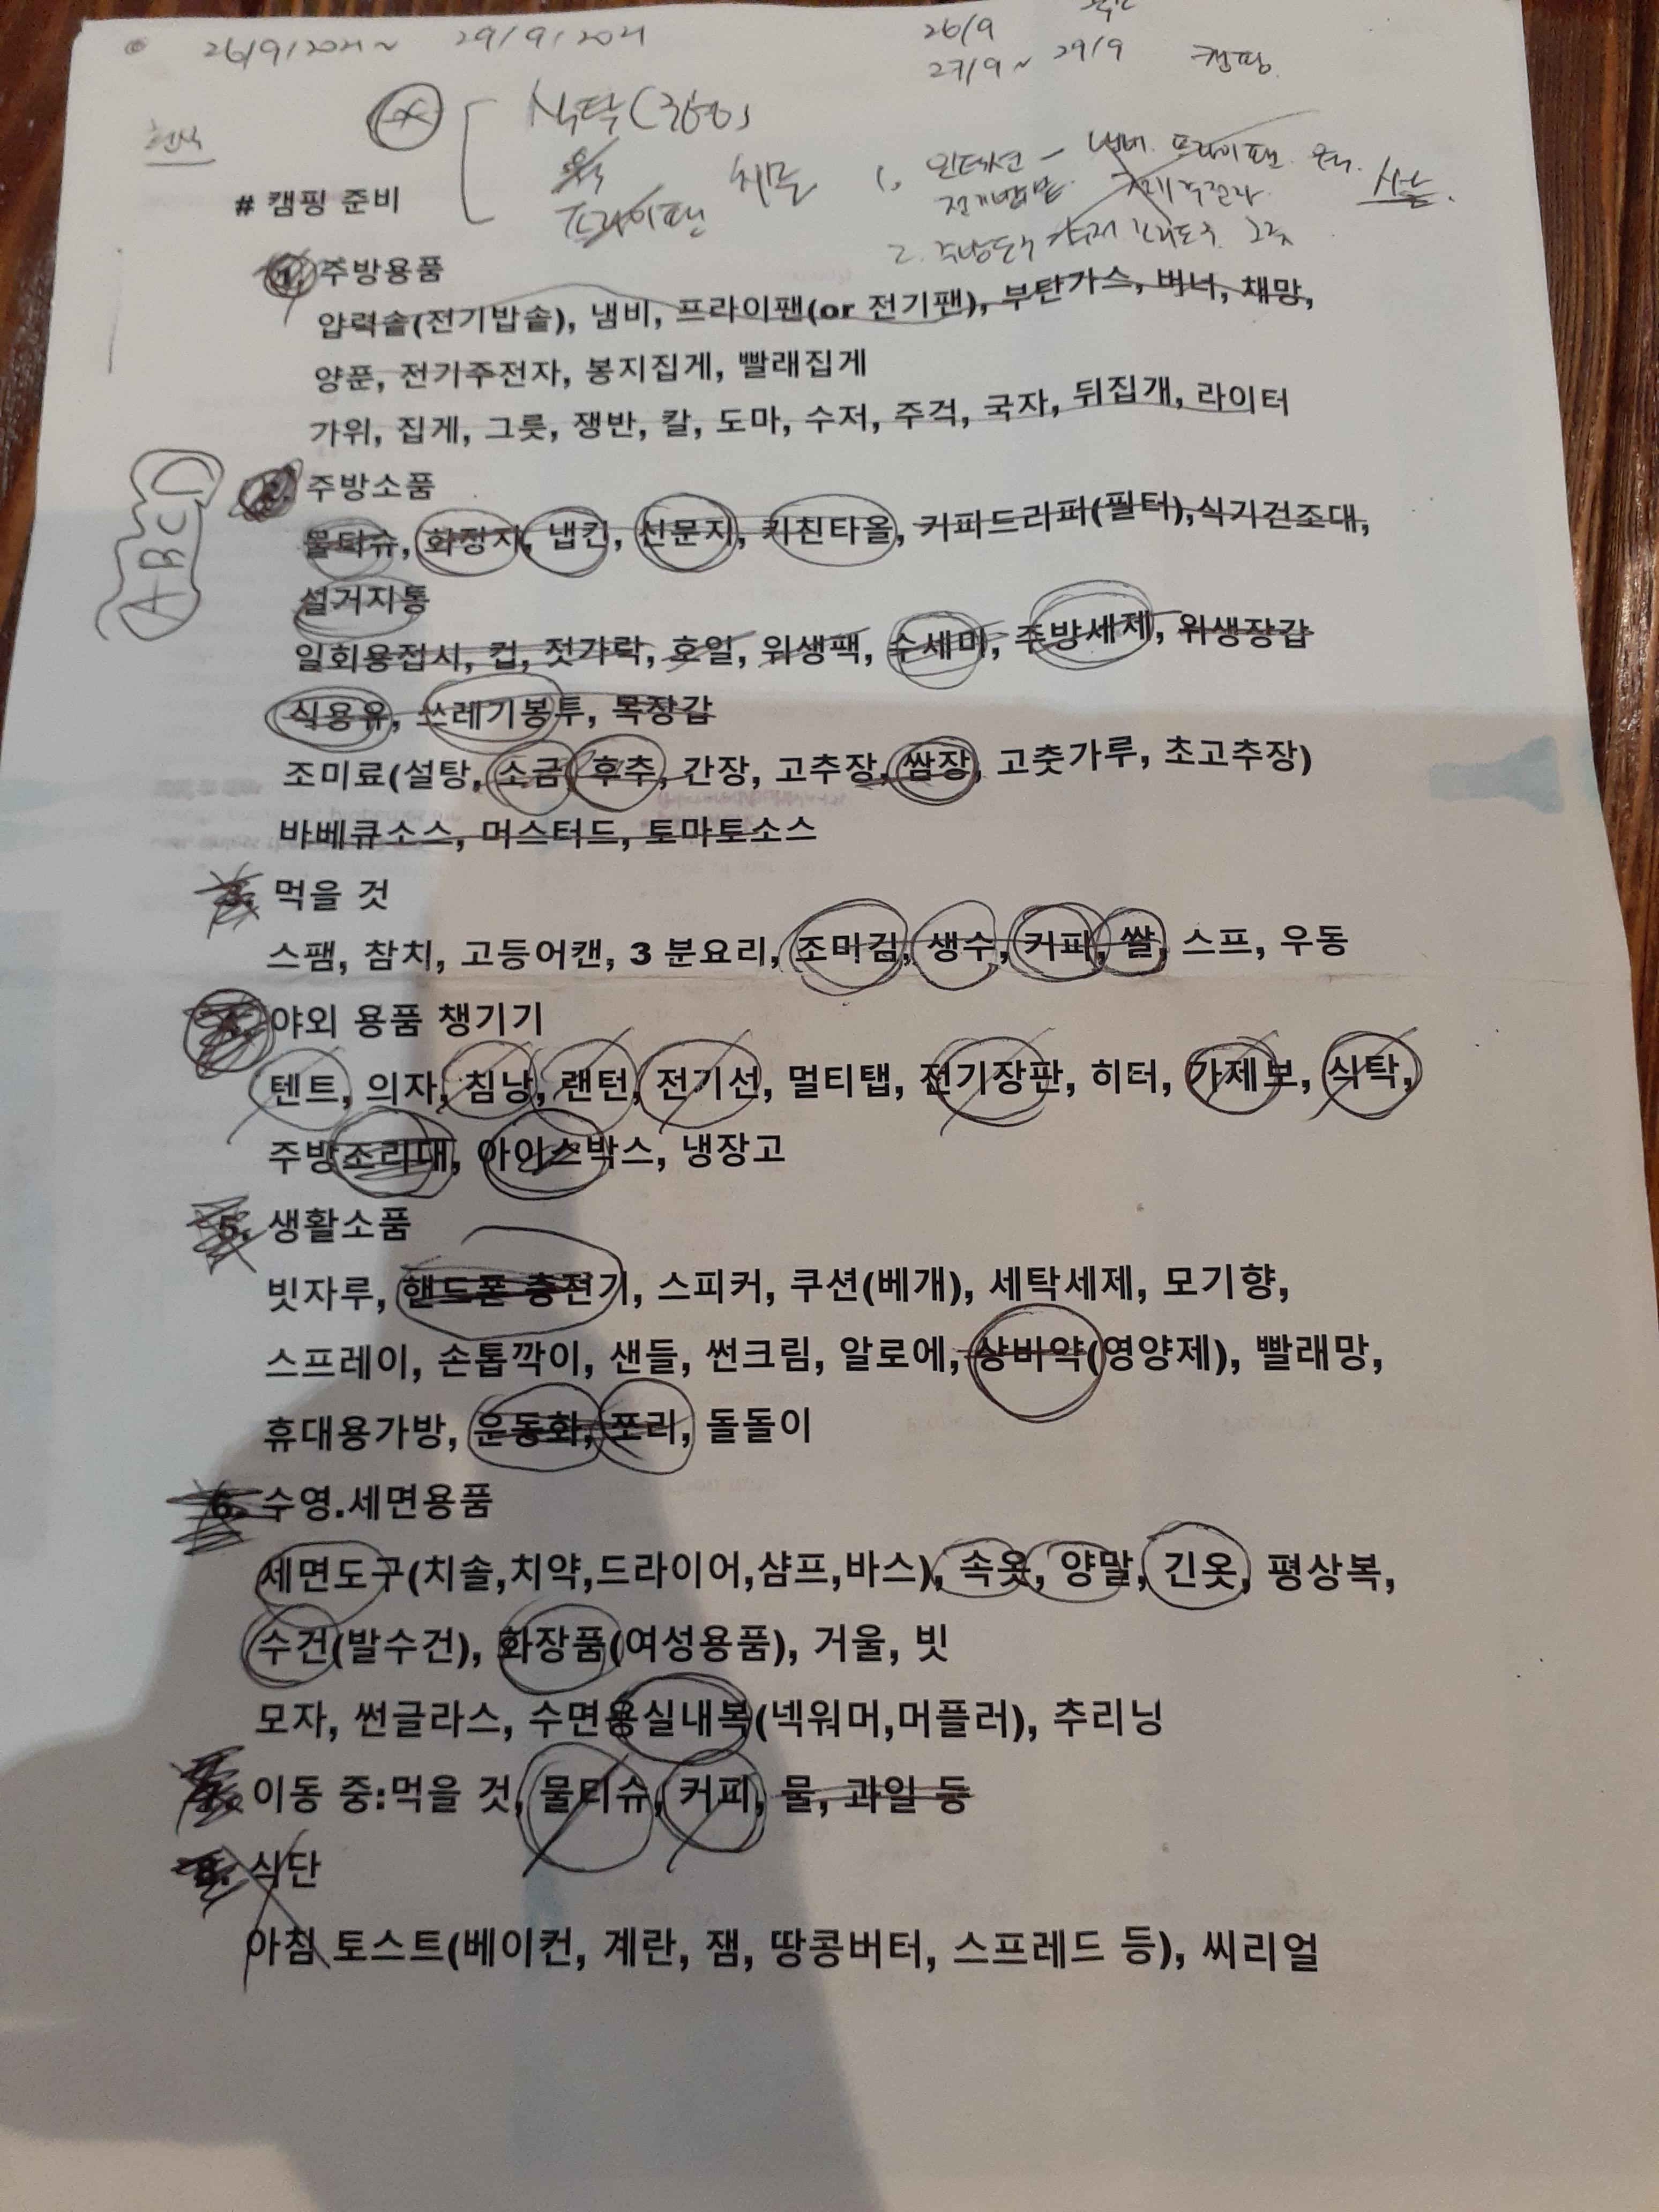 26/9/2021 ~ 29/9/2021
26/9
27/9 ~ 29/9 캠핑
식탁
프라이팬
# 캠핑 준비
1. 주방용품
압력솥(전기밥솥), 냄비, 프라이팬(or 전기팬), 부탄가스, 버너, 채망,
양푼, 전기주전자, 봉지집게, 빨래집게
가위, 집게, 그릇, 쟁반, 칼, 도마, 수저, 주걱, 국자, 뒤집개, 라이터
ABCD
2. 주방소품
물티슈, 화장지, 냅킨, 신문지, 키친타올, 커피드리퍼(필터),식기건조대,
설거지통
일회용접시, 컵, 젓가락, 호일, 위생팩, 수세미, 주방세제, 위생장갑
식용유, 쓰레기봉투, 목장갑
조미료(설탕, 소금, 후추, 간장, 고추장, 쌈장, 고춧가루, 초고추장)
바베큐소스, 머스터드, 토마토소스
3. 먹을 것
스팸, 참치, 고등어캔, 3 분요리, 조미김, 생수, 커피, 쌀, 스프, 우동
4. 야외 용품 챙기기
텐트, 의자, 침낭, 랜턴, 전기선, 멀티탭, 전기장판, 히터, 가제보, 식탁,
주방조리대, 아이스박스, 냉장고
5. 생활소품
빗자루, 핸드폰 충전기, 스피커, 쿠션(베개), 세탁세제, 모기향,
스프레이, 손톱깍이, 샌들, 썬크림, 알로에, 상비약(영양제), 빨래망,
휴대용가방, 운동화, 쪼리, 돌돌이
6. 수영.세면용품
세면도구(치솔,치약,드라이어,샴프,바스), 속옷, 양말, 긴옷, 평상복,
수건(발수건), 화장품(여성용품), 거울, 빗
모자, 썬글라스, 수면용실내복(넥워머,머플러), 추리닝
7. 이동 중:먹을 것, 물티슈, 커피, 물, 과일 등
8. 식단
아침 토스트(베이컨, 계란, 잼, 땅콩버터, 스프레드 등), 씨리얼